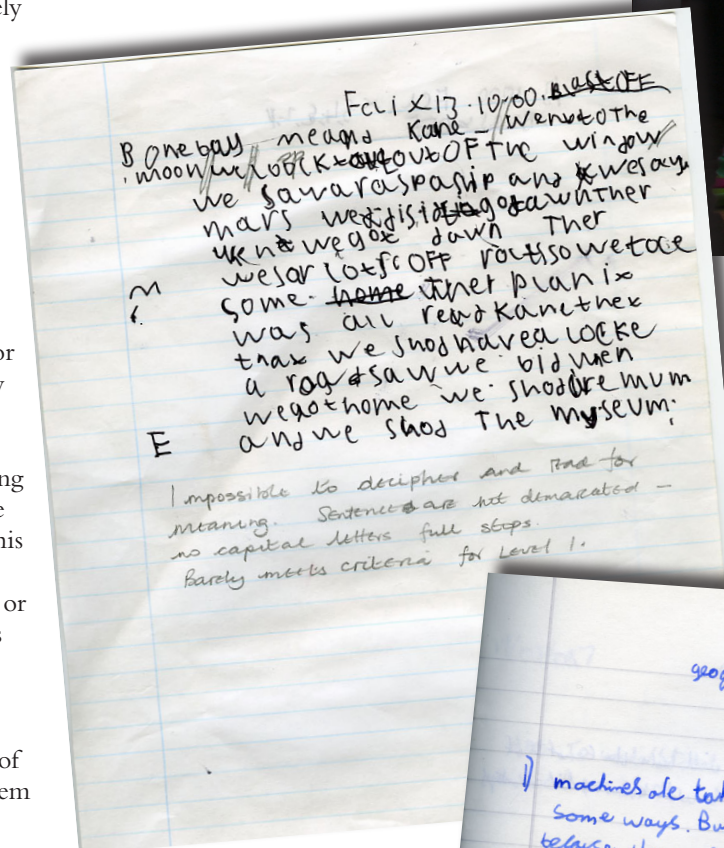 ely
or
ng
e
his
or
s
of
em
Fcl i x 13.10.00. blastOFF
B onebay meand Kane - wentothe
moon we look outoutOFThe window
we sawaraspaship and wesaw
mars
wen wegot dawn Ther
OFF
M some home uther planix
was all read Kanethex
thax we shod havea locke
a sawwe bid wen
wegothome we shod mum
E andwe shod The myseum.
Impossible to decipher and read for
meaning. Sentences are not demarcated –
no capital letters full stops.
Barely meets criteria for Level 1.
geog
1) machines are tak
some ways. Bu